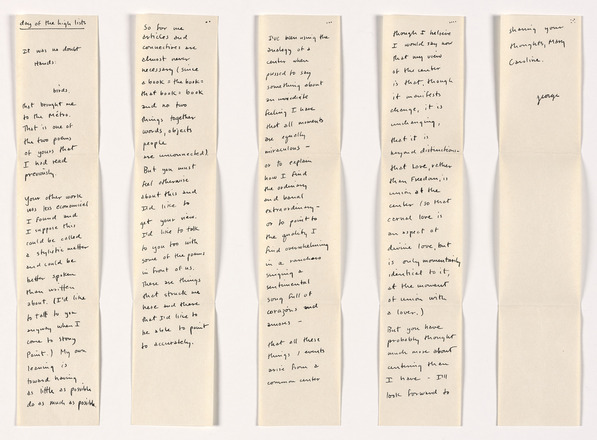 day of the high lists
It was no doubt
hands:
birds
that brought me
to the Métro.
That is one of
the two poems
of yours that
I had read
previously.
Your other work
was less economical
I found and
I suppose this
could be called
a stylistic matter
and could be
better spoken
than written
about. (I'd like
to talk to you
anyway when I
come to Stony
Point.) My own
leaning is
toward having
as little as possible
do as much as possible.
So for me
articles and
connectives are
almost never
necessary (since
a book = the book =
that book = book
and no two
things together
words, objects
people
are unconnected)
But you must
feel otherwise
about this and
I'd like to
get your view.
I'd like to talk
to you too with
some of the poems
in front of us.
There are things
that struck me
here and there
that I'd like to
be able to point
to accurately.
I've been using the
analogy of a
center when
pressed to say
something about
an immediate
feeling I have
that all moments
are equally
miraculous –
or to explain
how I find
the ordinary
and banal
extraordinary –
or to point to
the quality I
find overwhelming
in a ranchero
singing a
sentimental
song full of
corazons and
amores –
that all these
things / events
arise from a
common center
though I believe
I would say now
that my view
of the center
is that, though
it manifests
change, it is
unchanging,
that it is
beyond distinctions
that Love, rather
than Freedom, is
union at the
center (so that
carnal love is
an aspect of
divine love, but
is only momentarily
identical to it,
at the moment
of union with
a lover.)
But you have
probably thought
much more about
centering than
I have – I'll
look forward to
sharing your
thoughts, Mary
Caroline.
george